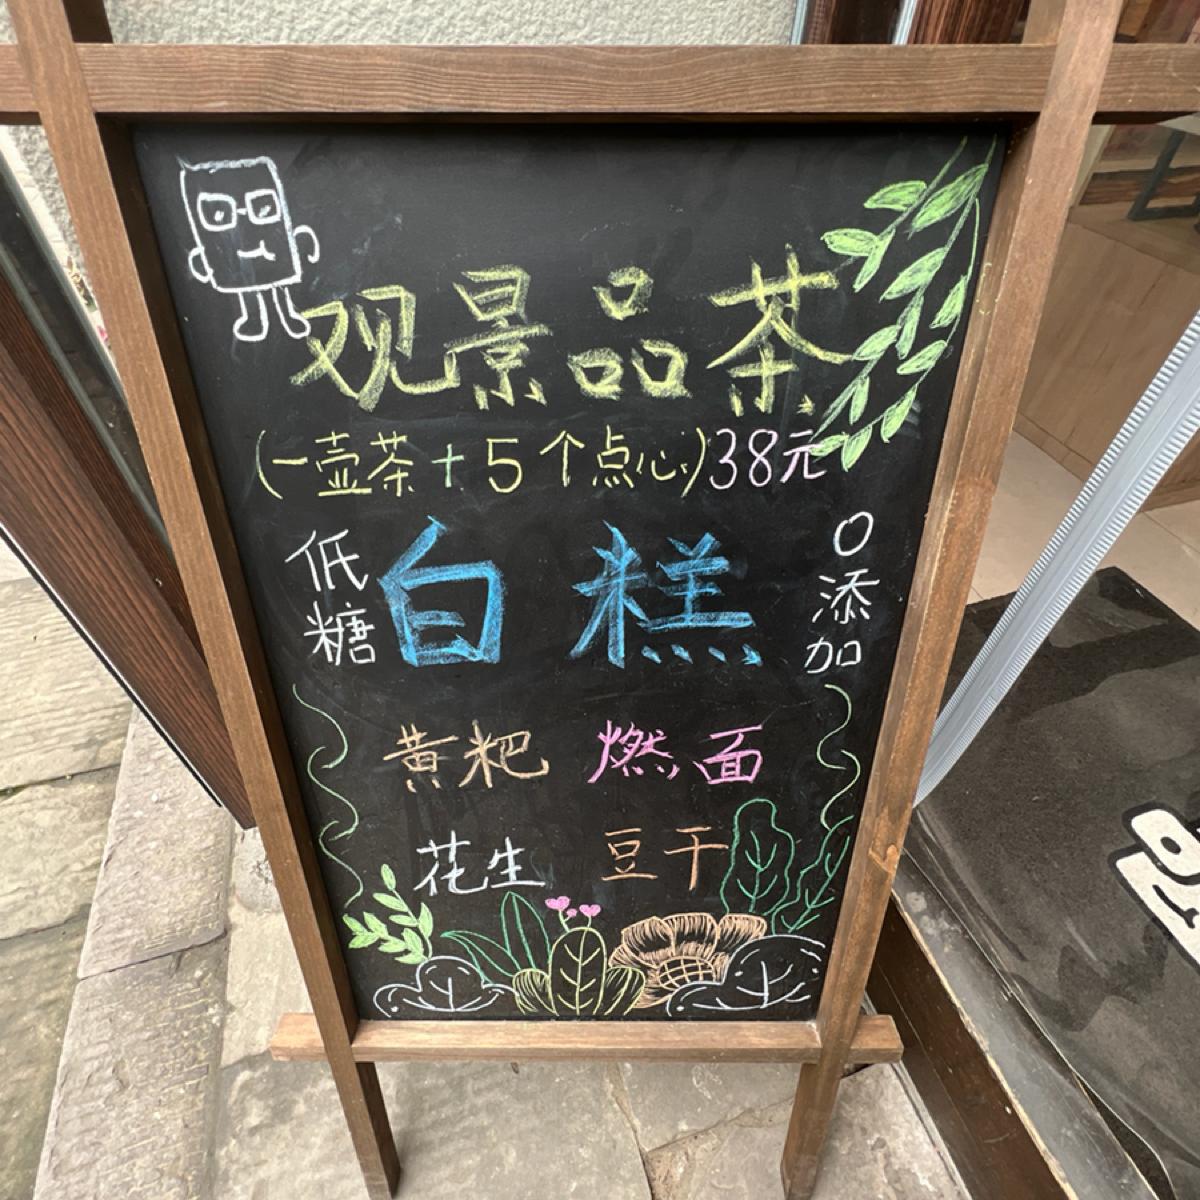 观景品茶
(一壶茶+5个点心)38元
低糖
白糕
0添加
黄粑 燃面
花生 豆干